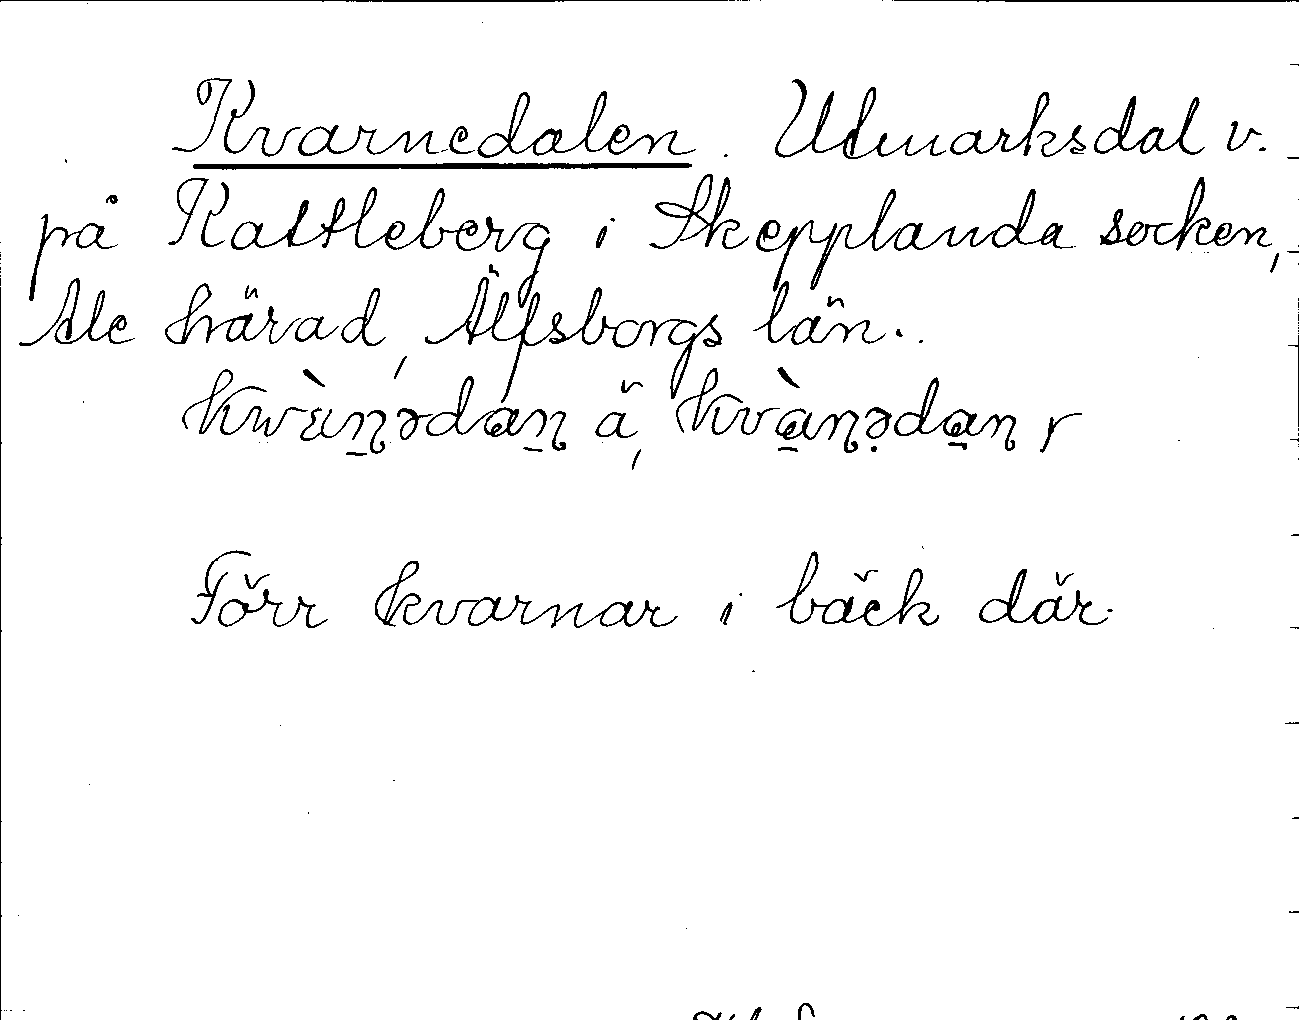 Kvarnedalen. Utmarksdal v.
på Kattleberg i Skepplanda socken,
Ale härad, Älfsborgs län.
kwàɳədaɳ ä, kvàɳədaɳ r
Förr kvarnar i bäck där.